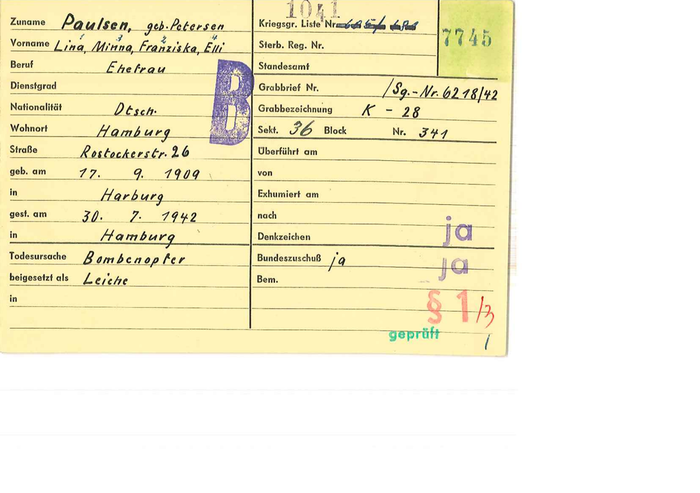 1041
7745
Zuname Paulsen, geb. Petersen
Vorname Lina, Minna, Franziska, Elli
Beruf Ehefrau
Dienstgrad
Nationalität Dtsch.
Wohnort Hamburg
Straße Rostockerstr. 26
geb. am 17. 9. 1909
in Harburg
gest. am 30. 7. 1942
in Hamburg
Todesursache Bombenopfer
beigesetzt als Leiche
in
B
Kriegsgr. Liste Nr.
Sterb. Reg. Nr.
Standesamt
Grabbrief Nr. /Sg.-Nr. 6218/42
Grabbezeichnung K - 28
Sekt. 36 Block Nr. 341
Überführt am
von
Exhumiert am
nach
Denkzeichen ja
Bundeszuschuß ja ja
Bem.
§ 1/3
geprüft